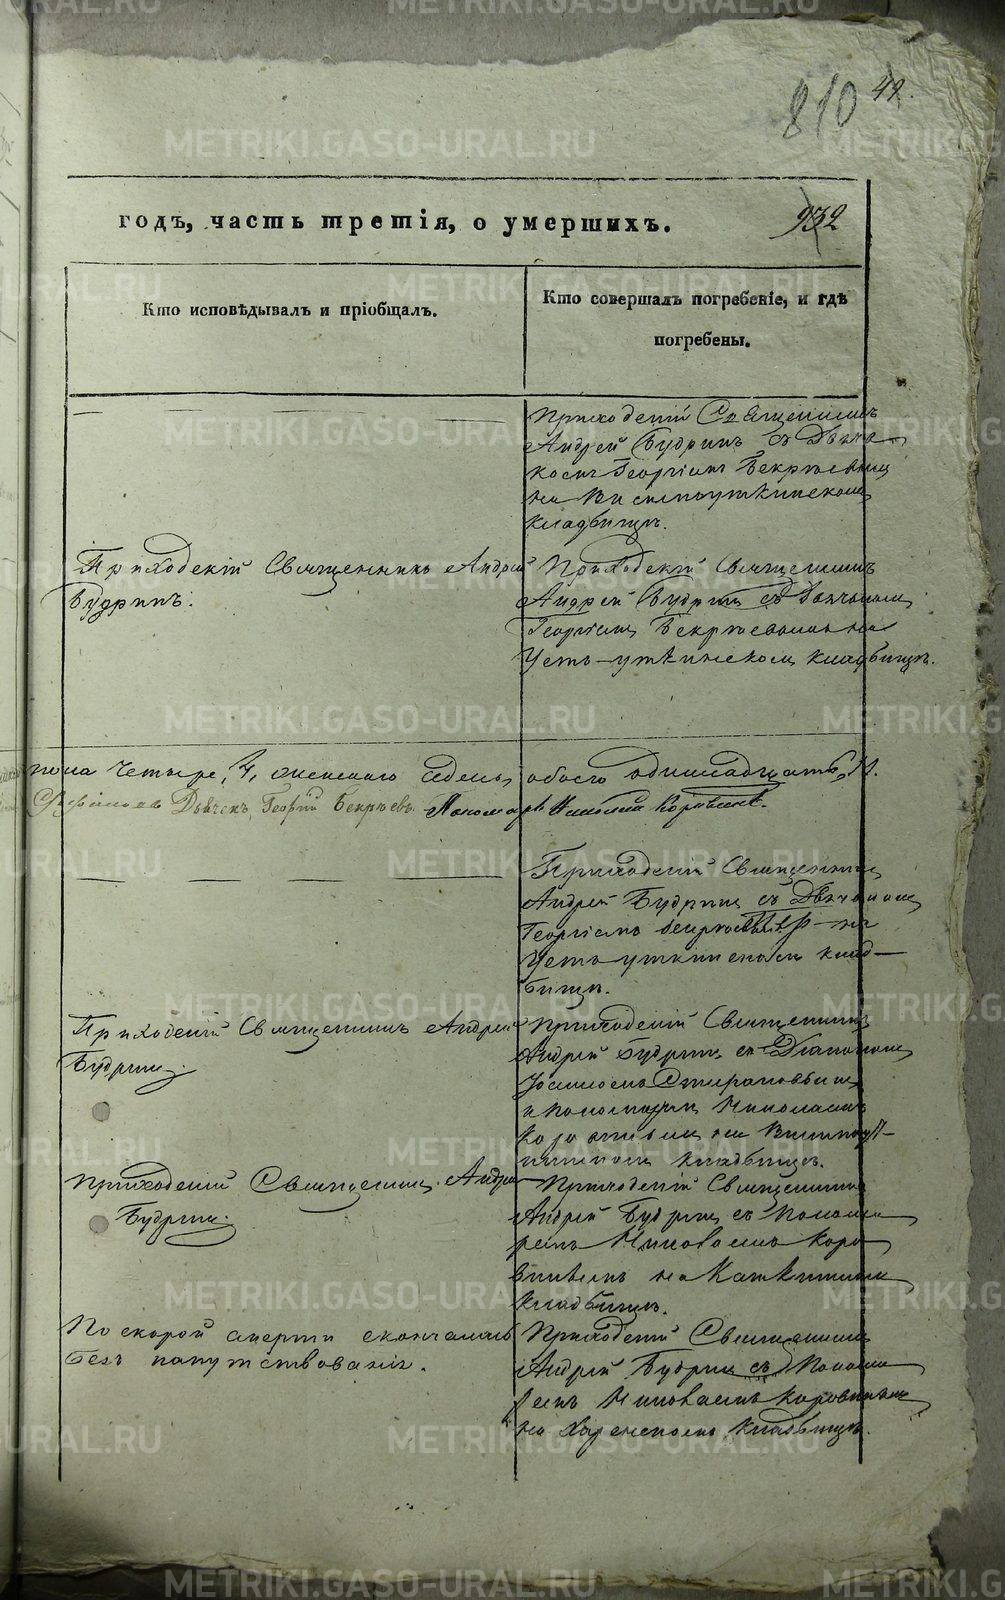 810 42.
годъ, часть третія, о умершихъ. 932
Кто исповѣдывалъ и пріобщалъ.
Кто совершалъ погребеніе, и гдѣ
погребены.
Приходскій Священникъ
Андрей Будринъ съ Дьяч
комъ Георгіемъ Бекрѣевым
на Висимоуткинском
кладбищѣ.
Приходскій Священникъ Андрей
Будринъ.
Приходскій Священникъ
Андрей Будрин съ Дьячкомъ
Георгіем Бекрѣевымъ на
Усть-уткинском кладбищѣ.
пола четыре, 4, женскаго седмь, обоего одинадцать, 11.
Дьячекъ Георгій Бекрѣевъ. Пономарь Николай Коровинъ.
Приходскій Священник
Андрей Будрин съ Дьячкомъ
Георгіемъ Бекрѣевым на
Усть уткинскомъ клад-
бищѣ.
Приходскій Священникъ Андрей
Будрин.
Приходскій Священник
Андрей Будрин съ Діакономъ
и пономарем Николаемъ
на
кладбищѣ.
Приходскій Священник Андрей
Будрин.
Приходскій Священник
Андрей Будрин съ Понома
ремъ Николаемъ Коро
винымъ на
кладбищѣ.
По скорой смерти скончались
безъ напутствованія.
Приходскій Священникъ
Андрей Будрин съ Понома
ремъ Николаемъ Коровинымъ
на Харенскомъ кладбищѣ.
METRIKI.GASO-URAL.RU